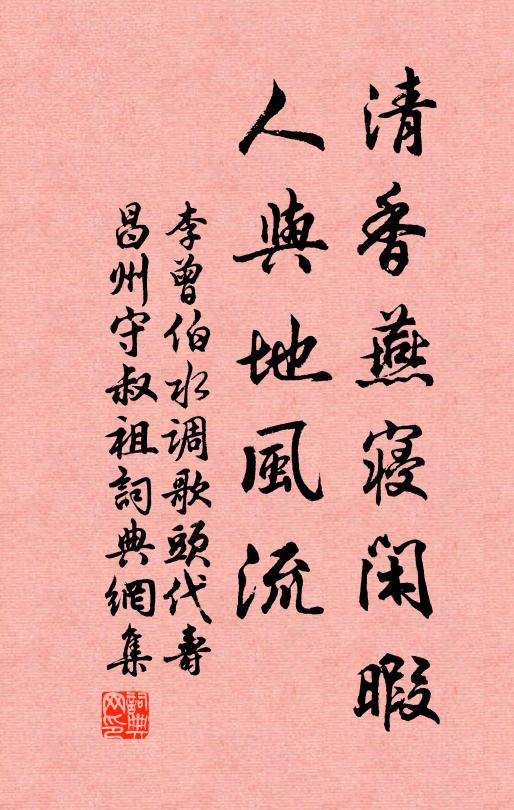 清香燕寝閑暇
人與地風流
李曾伯水调歌頭代壽
昌州守叔祖詞典網集
詞典网印